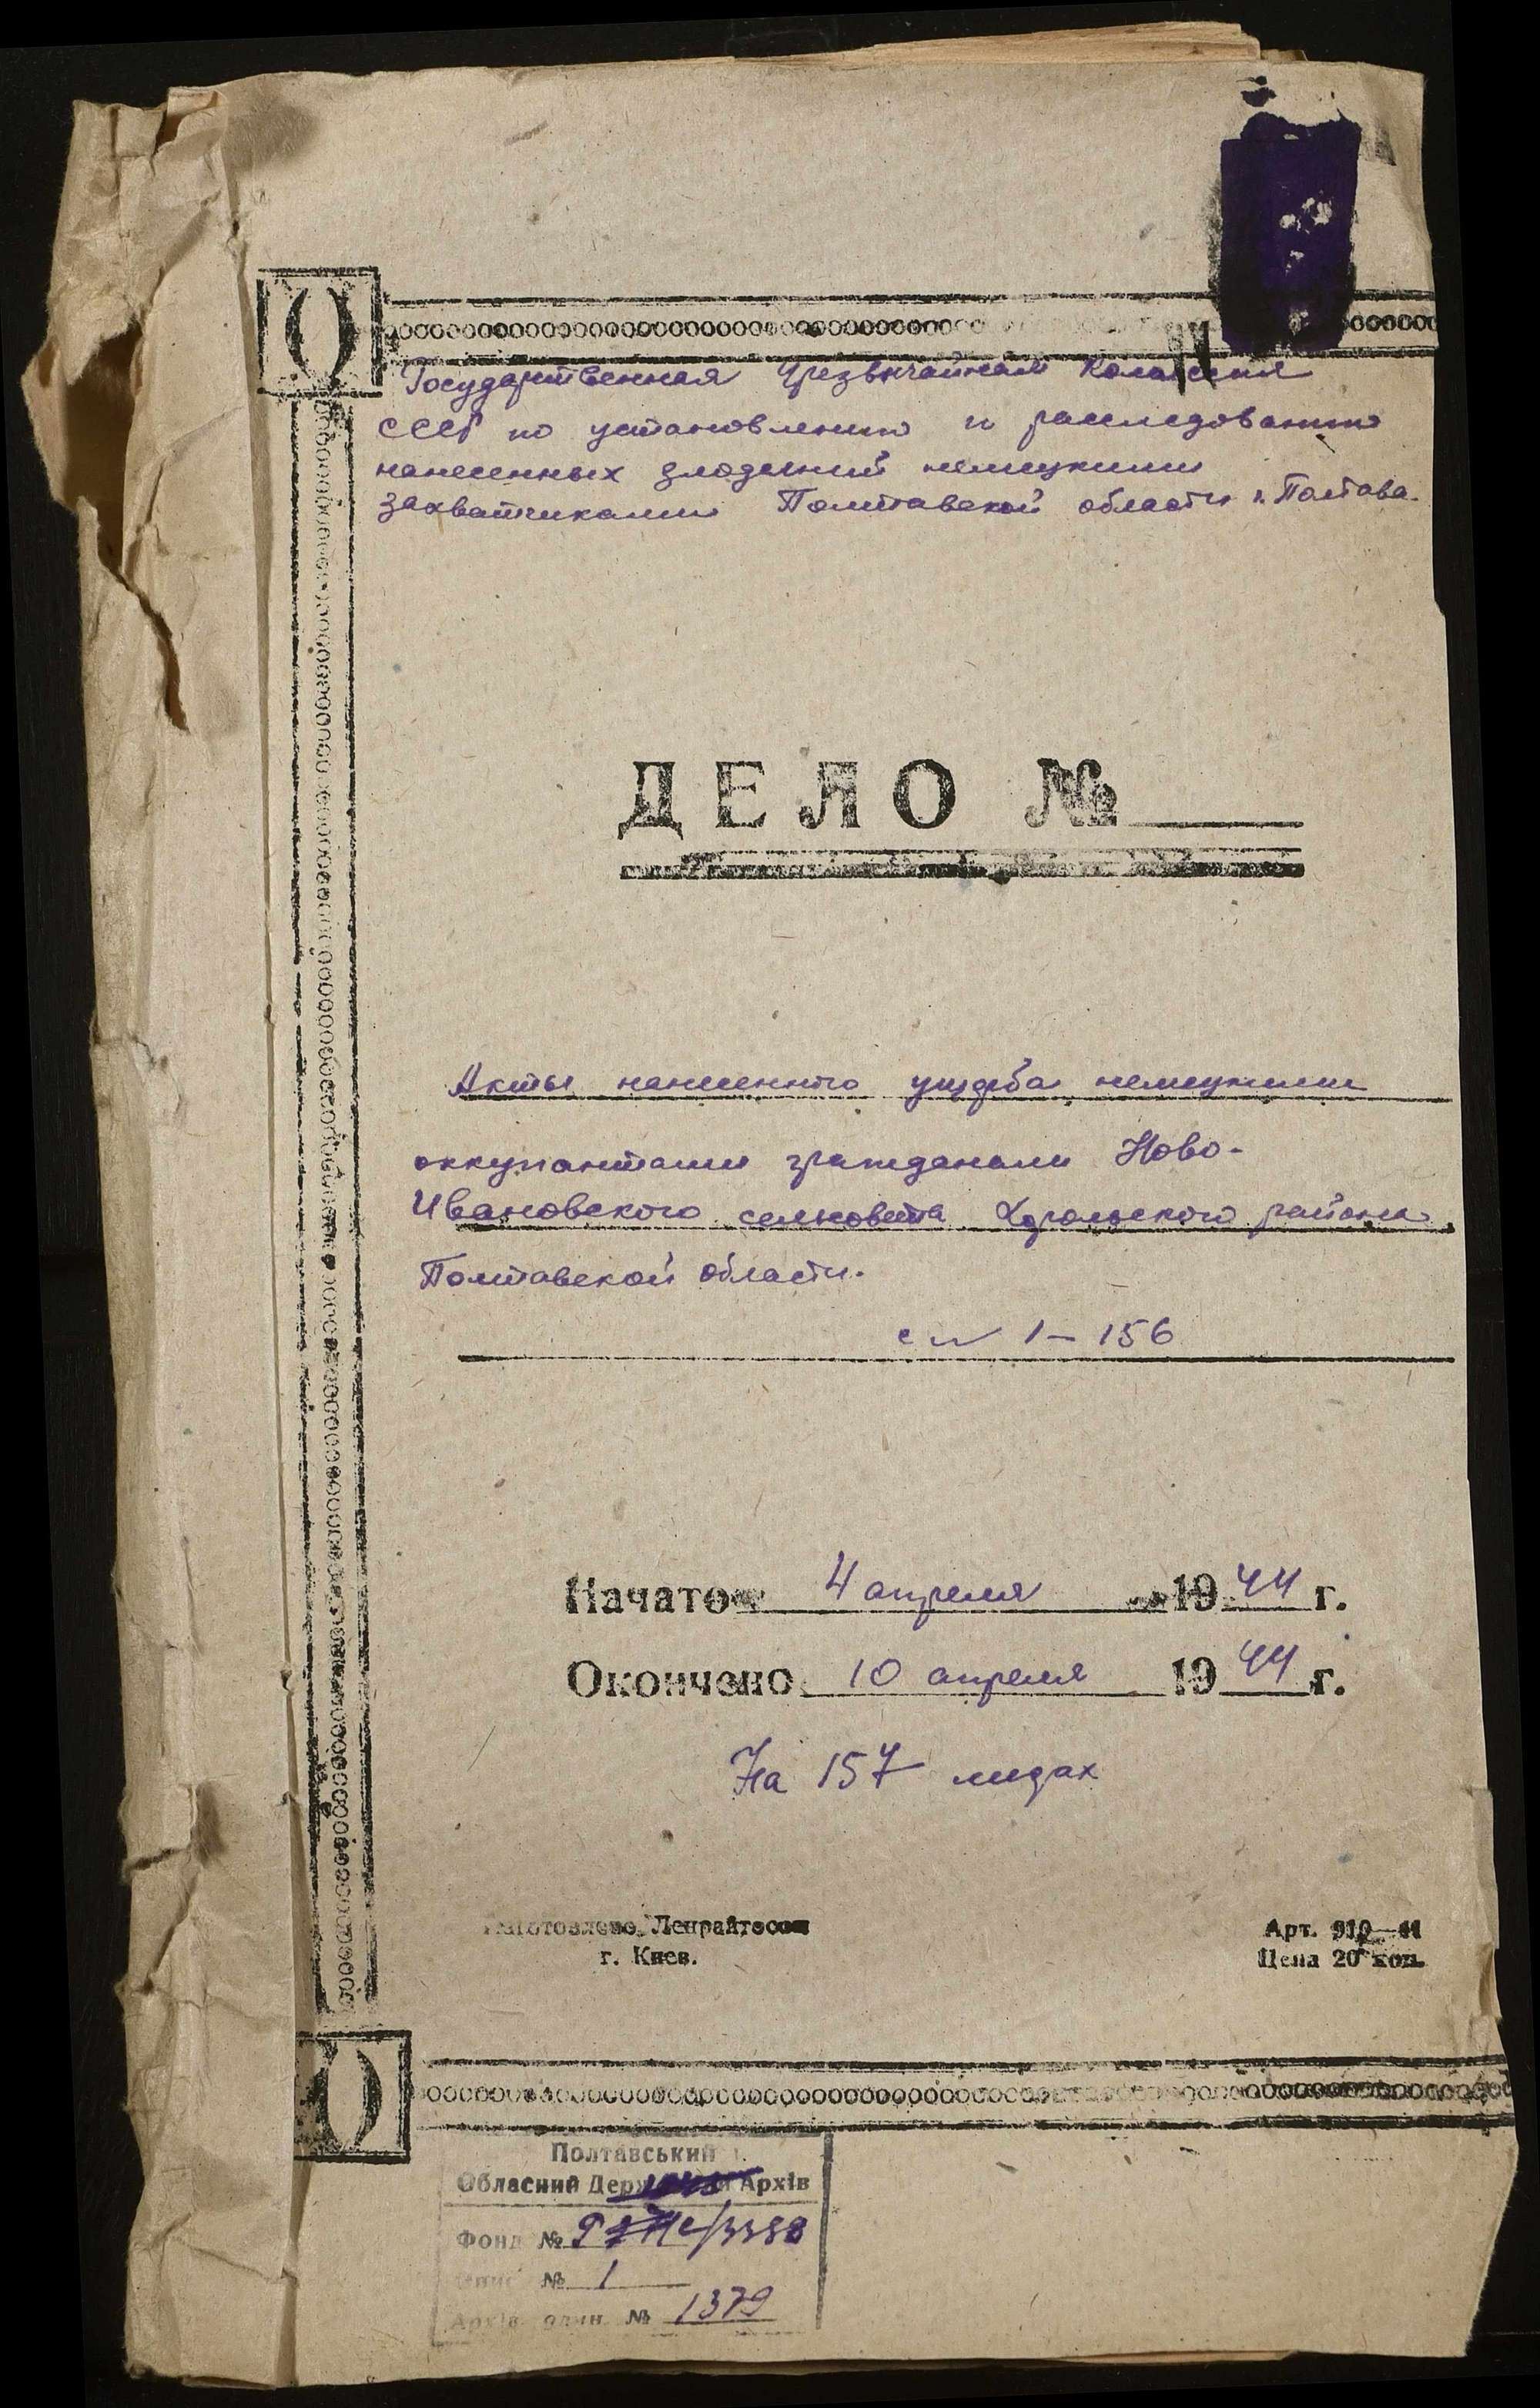 Государственная Чрезвычайная Комиссия
СССР по установлению и расследованию
нанесенных злодеяний немецкими
захватчиками Полтавской области г. Полтава.
ДЕЛО №
Акты нанесенного ущерба немецкими
оккупантами гражданами Ново-
Ивановского сельсовета Хорольского района
Полтавской области.
1 - 156
Начато 4 апреля 1944 г.
Окончено 10 апреля 1944 г.
На 157 лицах
г. Киев.
Арт. 910—11
Цена 20 коп.
Полтавський
Обласний Архів
Фонд № 3388
опис № 1
Архів. один. № 1379